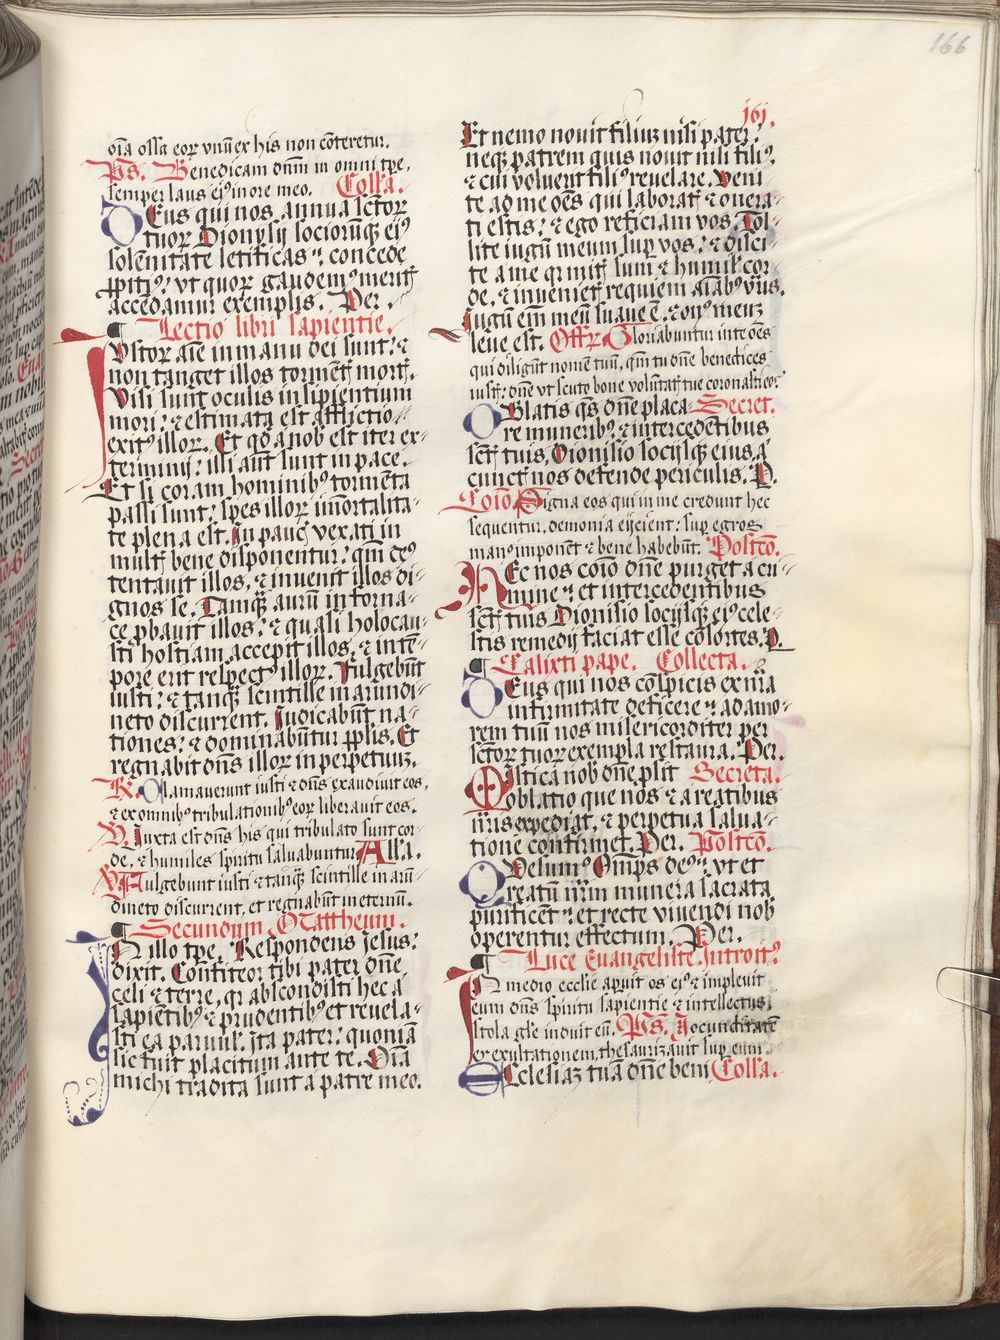 166
161.
oīa ossa eoꝝ vnū ex his non cōteretur.
Ps. Benedicam dn̄m in omni tpe,
semper laus eiꝰ in ore meo. Coll'a.
DEus qui nos annua sctōꝝ
tuoꝝ Dionysij sociorūqꝫ eiꝰ
solēnitate letificas : concede
ꝓpitiꝰ : vt quoꝝ gaudemꝰ meritꝭ
accedamur exemplis. Per.
¶ Lectio libri sapientie.
IVstoꝝ aīe in manu dei sunt : ⁊
non tanget illos tormentꝭ mortꝭ.
Visi sunt oculis insipientium
mori : ⁊ estimata est afflictio
exitꝰ illoꝝ. Et qd̄ a nob est iter ex-
terminij : illi aūt sunt in pace.
Et si coram hominibꝰ tormēta
passi sunt : spes illoꝝ imortalita-
te plena est. In paucꝭ vexati in
multꝭ bene disponentur : qm̄ deꝰ
tentauit illos, ⁊ inuenit illos di-
gnos se. Tamqꝫ aurū in forna-
ce ꝓbauit illos : ⁊ quasi holocau-
sti hostiam accepit illos, ⁊ in tē-
pore erit respectꝰ illoꝝ. Fulgebūt
iusti : ⁊ tanqꝫ scintille in arundi-
neto discurrent. Iudicabūt na-
tiones : ⁊ dominabūtur ppl̄is. Et
regnabit dn̄s illoꝝ in perpetuuꝫ.
R. Clamauerunt iusti ⁊ dn̄s exaudiuit eos,
⁊ ex omnibꝰ tribulationibꝰ eoꝝ liberauit eos.
V. Iuxta est dn̄s his qui tribulato sunt cor-
de, ⁊ humiles spiritu saluabuntur. All'a.
V. Fulgebunt iusti ⁊ tanqꝫ scintille in arū-
dineto discurrent, et regnabūt in eternū.
¶ Secundum Mattheum.
IN illo tpe. Respondens Jesus :
dixit. Confiteor tibi pater dn̄e
celi ⁊ terre, qꝛ abscondisti hec a
sapientibꝰ ⁊ prudentibꝰ et reuela-
sti ea paruulꝭ. Ita pater : quoniā
sic fuit placitum ante te. Oīa
michi tradita sunt a patre meo.
Et nemo nouit filiuꝫ nisi pater :
neqꝫ patrem quis nouit nisi filiꝰ,
⁊ cui voluerit filiꝰ reuelare. Veni
te ad me oēs qui laboratꝭ ⁊ onera-
ti estis : ⁊ ego reficiam vos. Tol-
lite iugū meum suꝑ vos : ⁊ disci-
te a me qꝛ mitꝭ sum ⁊ humilꝭ cor-
de, ⁊ inuenietꝭ requiem aīabꝰ vr̄is.
Iugū em̄ meū suaue ē : ⁊ onꝰ meuꝫ
leue est. Offr. Gloriabuntur in te oēs
qui diligūt nomē tuū, qm̄ tu dn̄e benedices
iustꝭ : dn̄e vt scuto bone volūtatꝭ tue coronasti eoꝰ
OBlatis qs dn̄e placa- Secret.
re muneribꝰ : ⁊ intercedētibus
sctꝭ tuis, Dionisio socijsqꝫ eius, a
cunctꝭ nos defende periculis. P.
Coīo. Signa eos qui in me credunt hec
sequentur. demonia eijcient : suꝑ egros
manꝰ imponēt ⁊ bene habebūt. Postcō.
HEc nos coīo dn̄e purget a cri-
mine : et intercedentibus
sctꝭ tuis Dionisio socijsqꝫ eiꝰ cele-
stis remedij faciat esse cōsortes. P.
¶ Calixti pape. Collecta.
DEus qui nos cōspicis ex nr̄a
infirmitate deficere : ad amo-
rem tuū nos misericorditer per
sctōꝝ tuoꝝ exempla restaura. Per.
MIstica nob dn̄e ꝓsit Secreta.
oblatio que nos ⁊ a reatibus
nr̄is expediat, ⁊ perpetua salua-
tione confirmet. Per. Postcō.
QVesumꝰ Omps deꝰ : vt et
reatū nr̄m munera sacrata
purificent : et recte viuendi nob
operentur effectum. Per.
¶ Luce Euangeliste. Introitꝰ
IN medio ecclīe aꝑuit os eiꝰ : ⁊ impleuit
eum dn̄s spiritu sapientie ⁊ intellectus,
stola gl'e induit eū. Ps. Iocunditatē
⁊ exultationem, thesaurizauit suꝑ eum.
ECclesiaꝫ tuā dn̄e beni Coll'a.